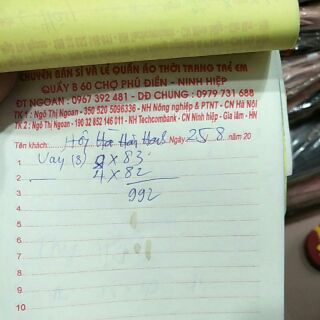 CHUYÊN BÁN SỈ VÀ LẺ QUẦN ÁO THỜI TRANG TRẺ EM
QUẦY B 60 CHỢ PHÚ ĐIỀN - NINH HIỆP
ĐT NGOAN : 0967 392 481 - DĐ CHUNG : 0979 731 688
TK 1 : Ngô Thị Ngoan - 350 520 5096336 - NH Nông nghiệp & PTNT - CN Hà Nội
TK 2 : Ngô Thị Ngoan - 190 32 852 146 011 - NH Techcombank - CN Ninh hiệp - Gia lâm - HN
Tên khách: Ngày 25/8 năm 20
1 Vay (3) × 83
2 4 × 82
3 992
4
5
6
7
8
9
10